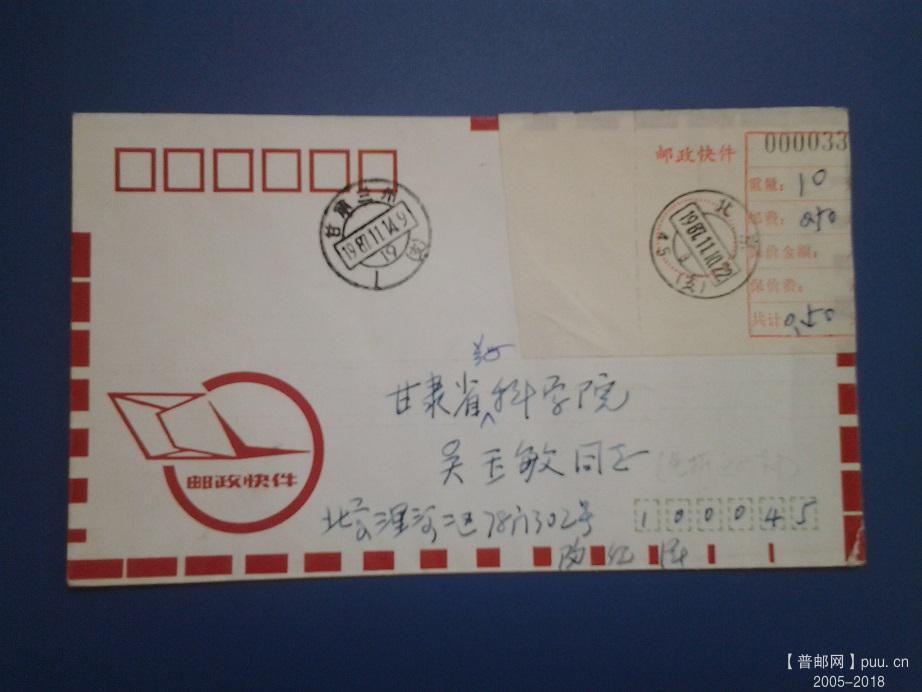 000033
邮政快件
重量: 10
邮费: 0.50
保价金额:
保价费:
共计 0.50
北京
1987.11.10.22
45 (支)
甘肃兰州
1987.11.14.9
19
1 (支)
甘肃省科学院
吴玉敏同志
邮政快件
北京
302号
100045
【普邮网】puu.cn
2005-2018